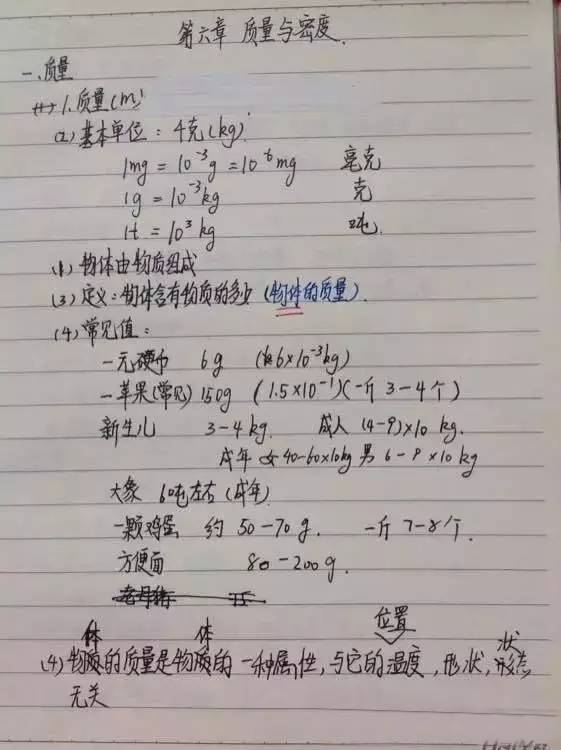 第六章 质量与密度.
一.质量
(1) 1.质量(m)
(2) 基本单位：千克(kg)
1mg = 10⁻³g = 10⁻⁶mg 毫克
1g = 10⁻³kg 克
1t = 10³kg 吨.
(1) 物体由物质组成
(3) 定义：物体含有物质的多少 (物体的质量).
(4) 常见值：
一元硬币 6g (6×10⁻³kg)
一苹果(常见) 150g (1.5×10⁻¹)(一斤 3-4个)
新生儿 3-4kg. 成人 (4-9)×10 kg.
成年 女 40-60×10kg 男 6-9×10 kg
大象 6吨左右 (成年)
一颗鸡蛋 约 50-70g. 一斤 7-8个.
方便面 80-200g.
体 体 位置 状
(4) 物质的质量是物质的一种属性，与它的温度，形状，形态
无关